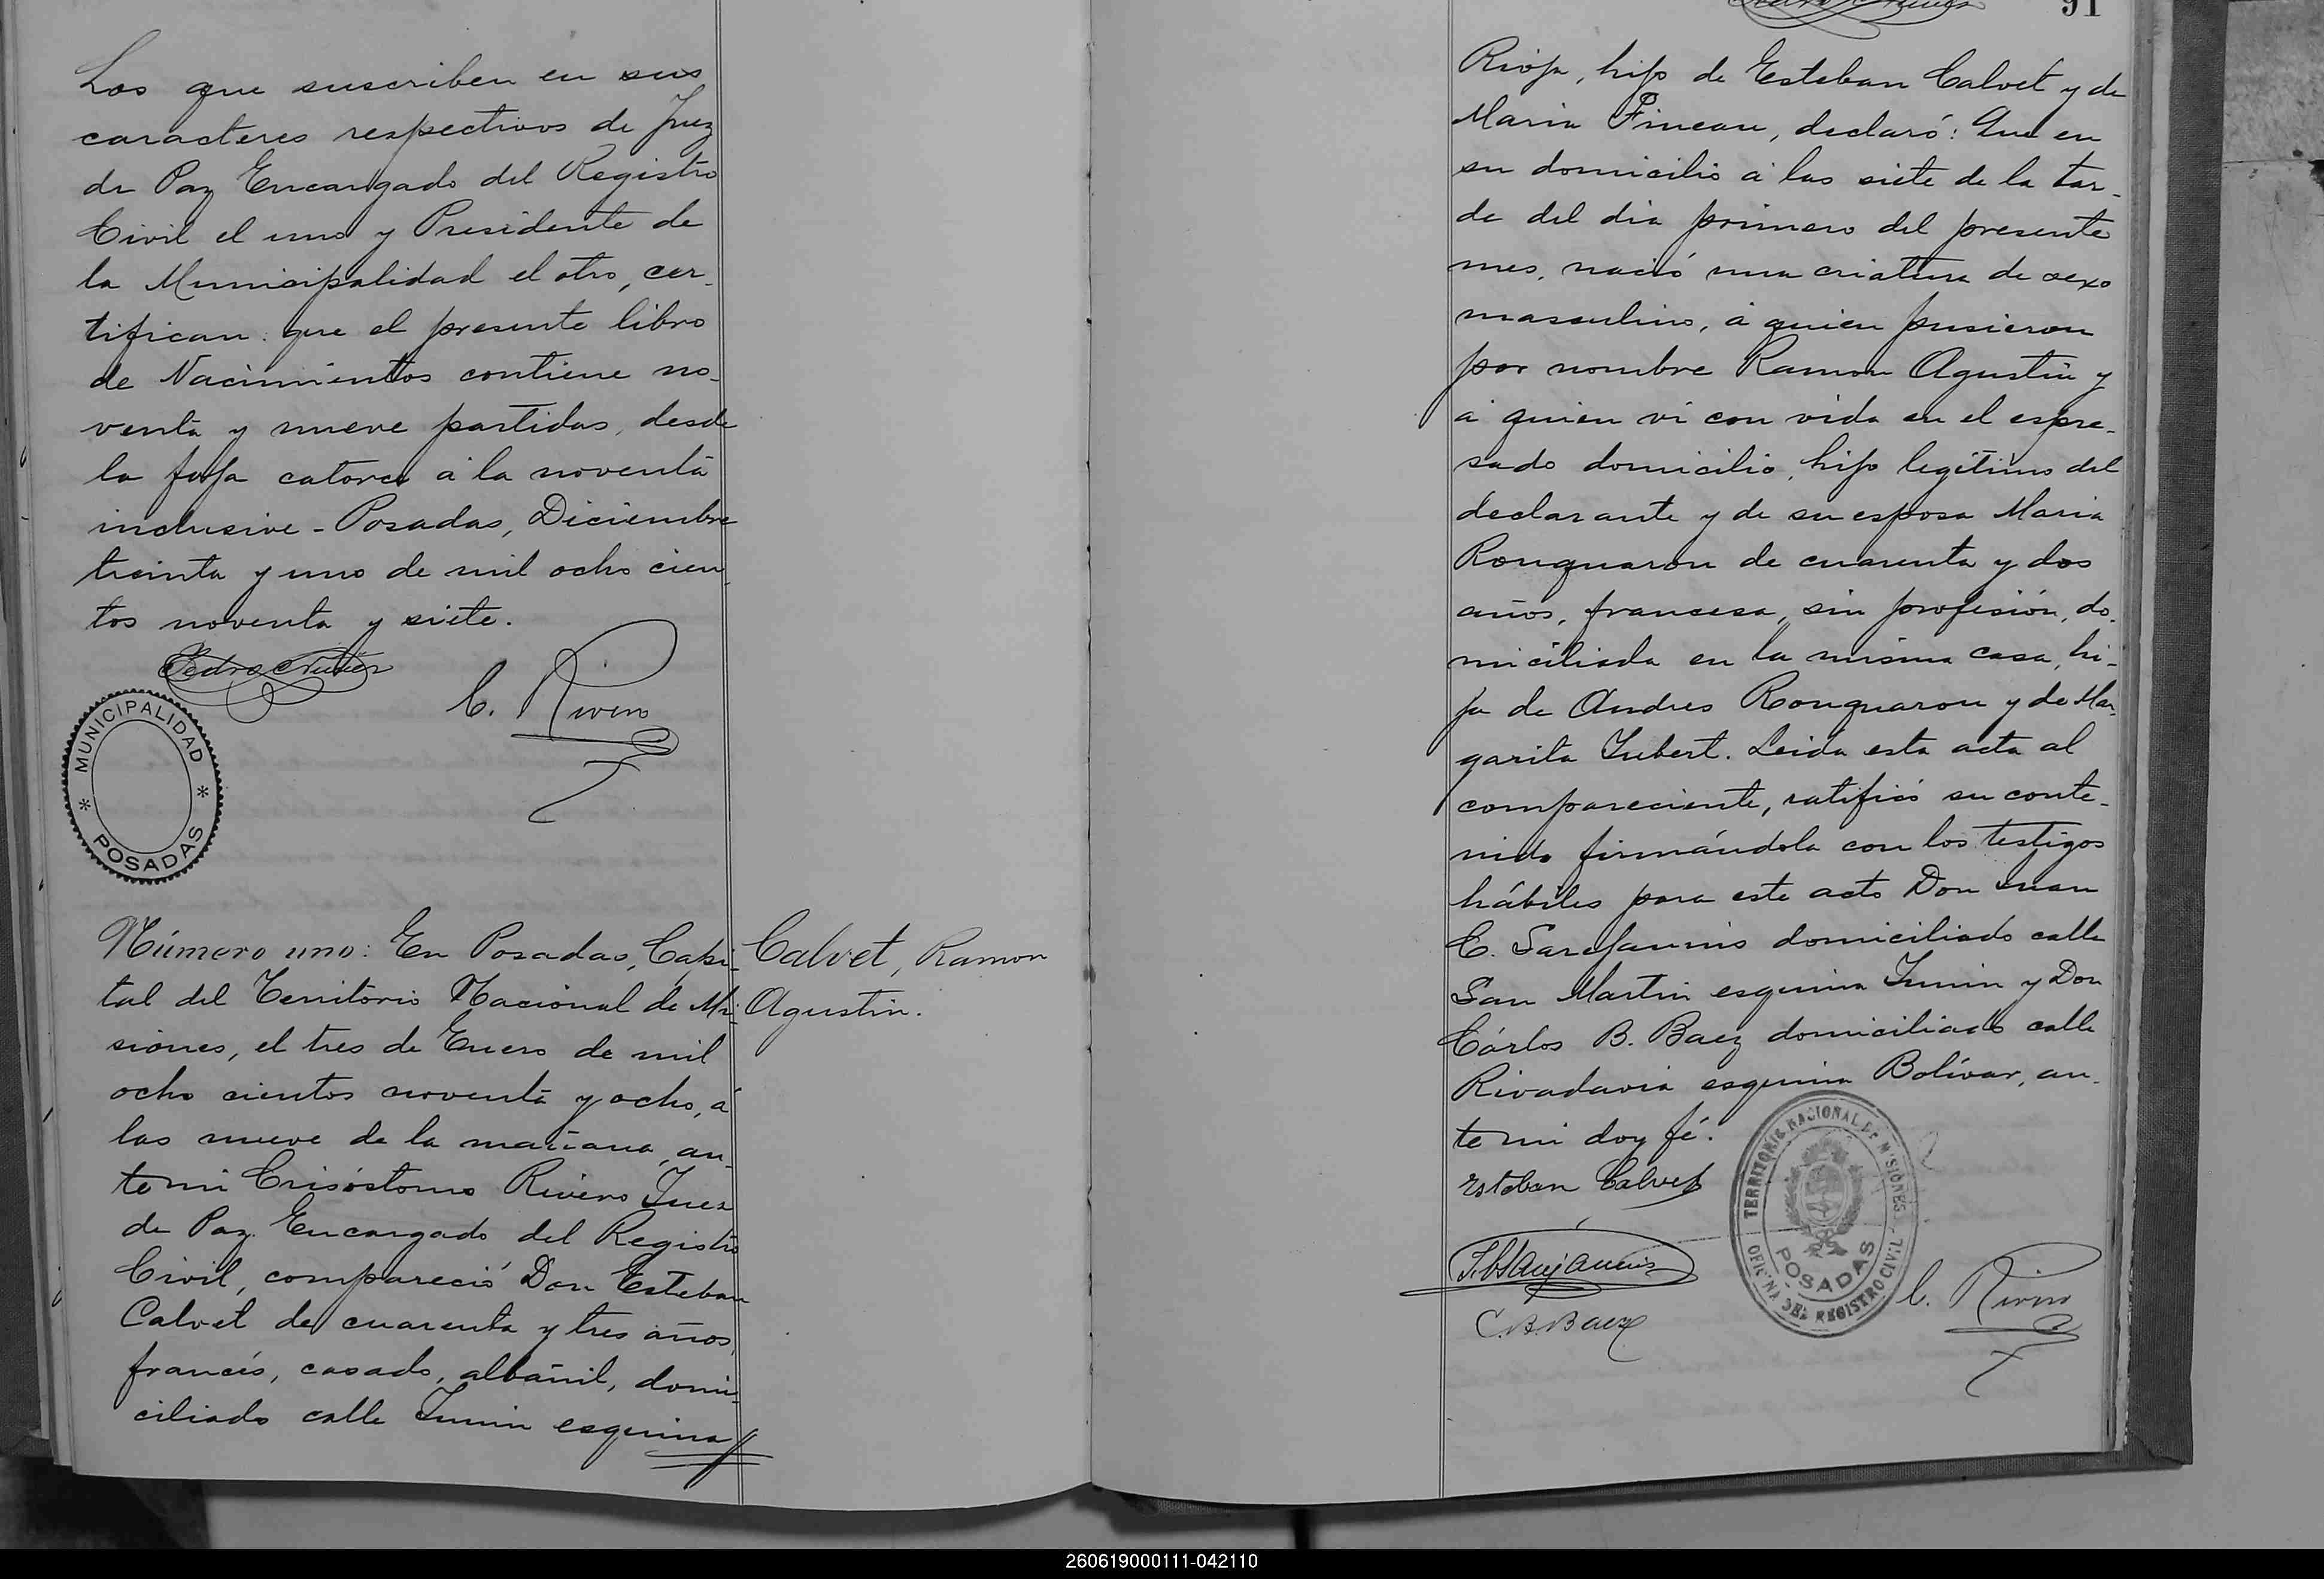 Los que suscriben en sus
caracteres respectivos de Juez
de Paz Encargado del Registro
Civil el uno y Presidente de
la Municipalidad el otro, cer-
tifican: que el presente libro
de Nacimientos contiene no-
venta y nueve partidas, desde
la foja catorce á la noventa
inclusive - Posadas, Diciembre
treinta y uno de mil ocho cien-
tos noventa y siete.
Pedro Nuñez
C. Rivero
MUNICIPALIDAD
POSADAS
Número uno: En Posadas, Capi-
tal del Territorio Nacional de Mi-
siones, el tres de Enero de mil
ocho cientos noventa y ocho, á
las nueve de la mañana, an-
te mi Crisóstomo Rivero Juez
de Paz Encargado del Registro
Civil, compareció Don Esteban
Calvet de cuarenta y tres años,
francés, casado, albañil, domi-
ciliado calle Junin esquina
Calvet, Ramon
Agustin.
Pedro Nuñez
91
Rioja, hijo de Esteban Calvet y de
Maria Pineau, declaró: Que en
su domicilio á las siete de la tar-
de del dia primero del presente
mes, nació una criatura de sexo
masculino, á quien pusieron
por nombre Ramon Agustin y
á quien vi con vida en el espre-
sado domicilio, hijo legítimo del
declarante y de su esposa Maria
Ronquaron de cuarenta y dos
años, francesa, sin profesión, do-
miciliada en la misma casa, hi-
ja de Andres Ronquaron y de Mar-
garita Jubert. Leida esta acta al
compareciente, ratificó su conte-
nido firmándola con los testigos
hábiles para este acto Don Juan
E. domiciliado calle
San Martin esquina Junin y Don
Cárlos B. Baez domiciliado calle
Rivadavia esquina Bolívar, an-
te mi doy fé.
Esteban Calvet
C. B. Baez
TERRITORIO NACIONAL DE MISIONES
POSADAS
OFICINA DEL REGISTRO CIVIL
C. Rivero
260619000111-042110